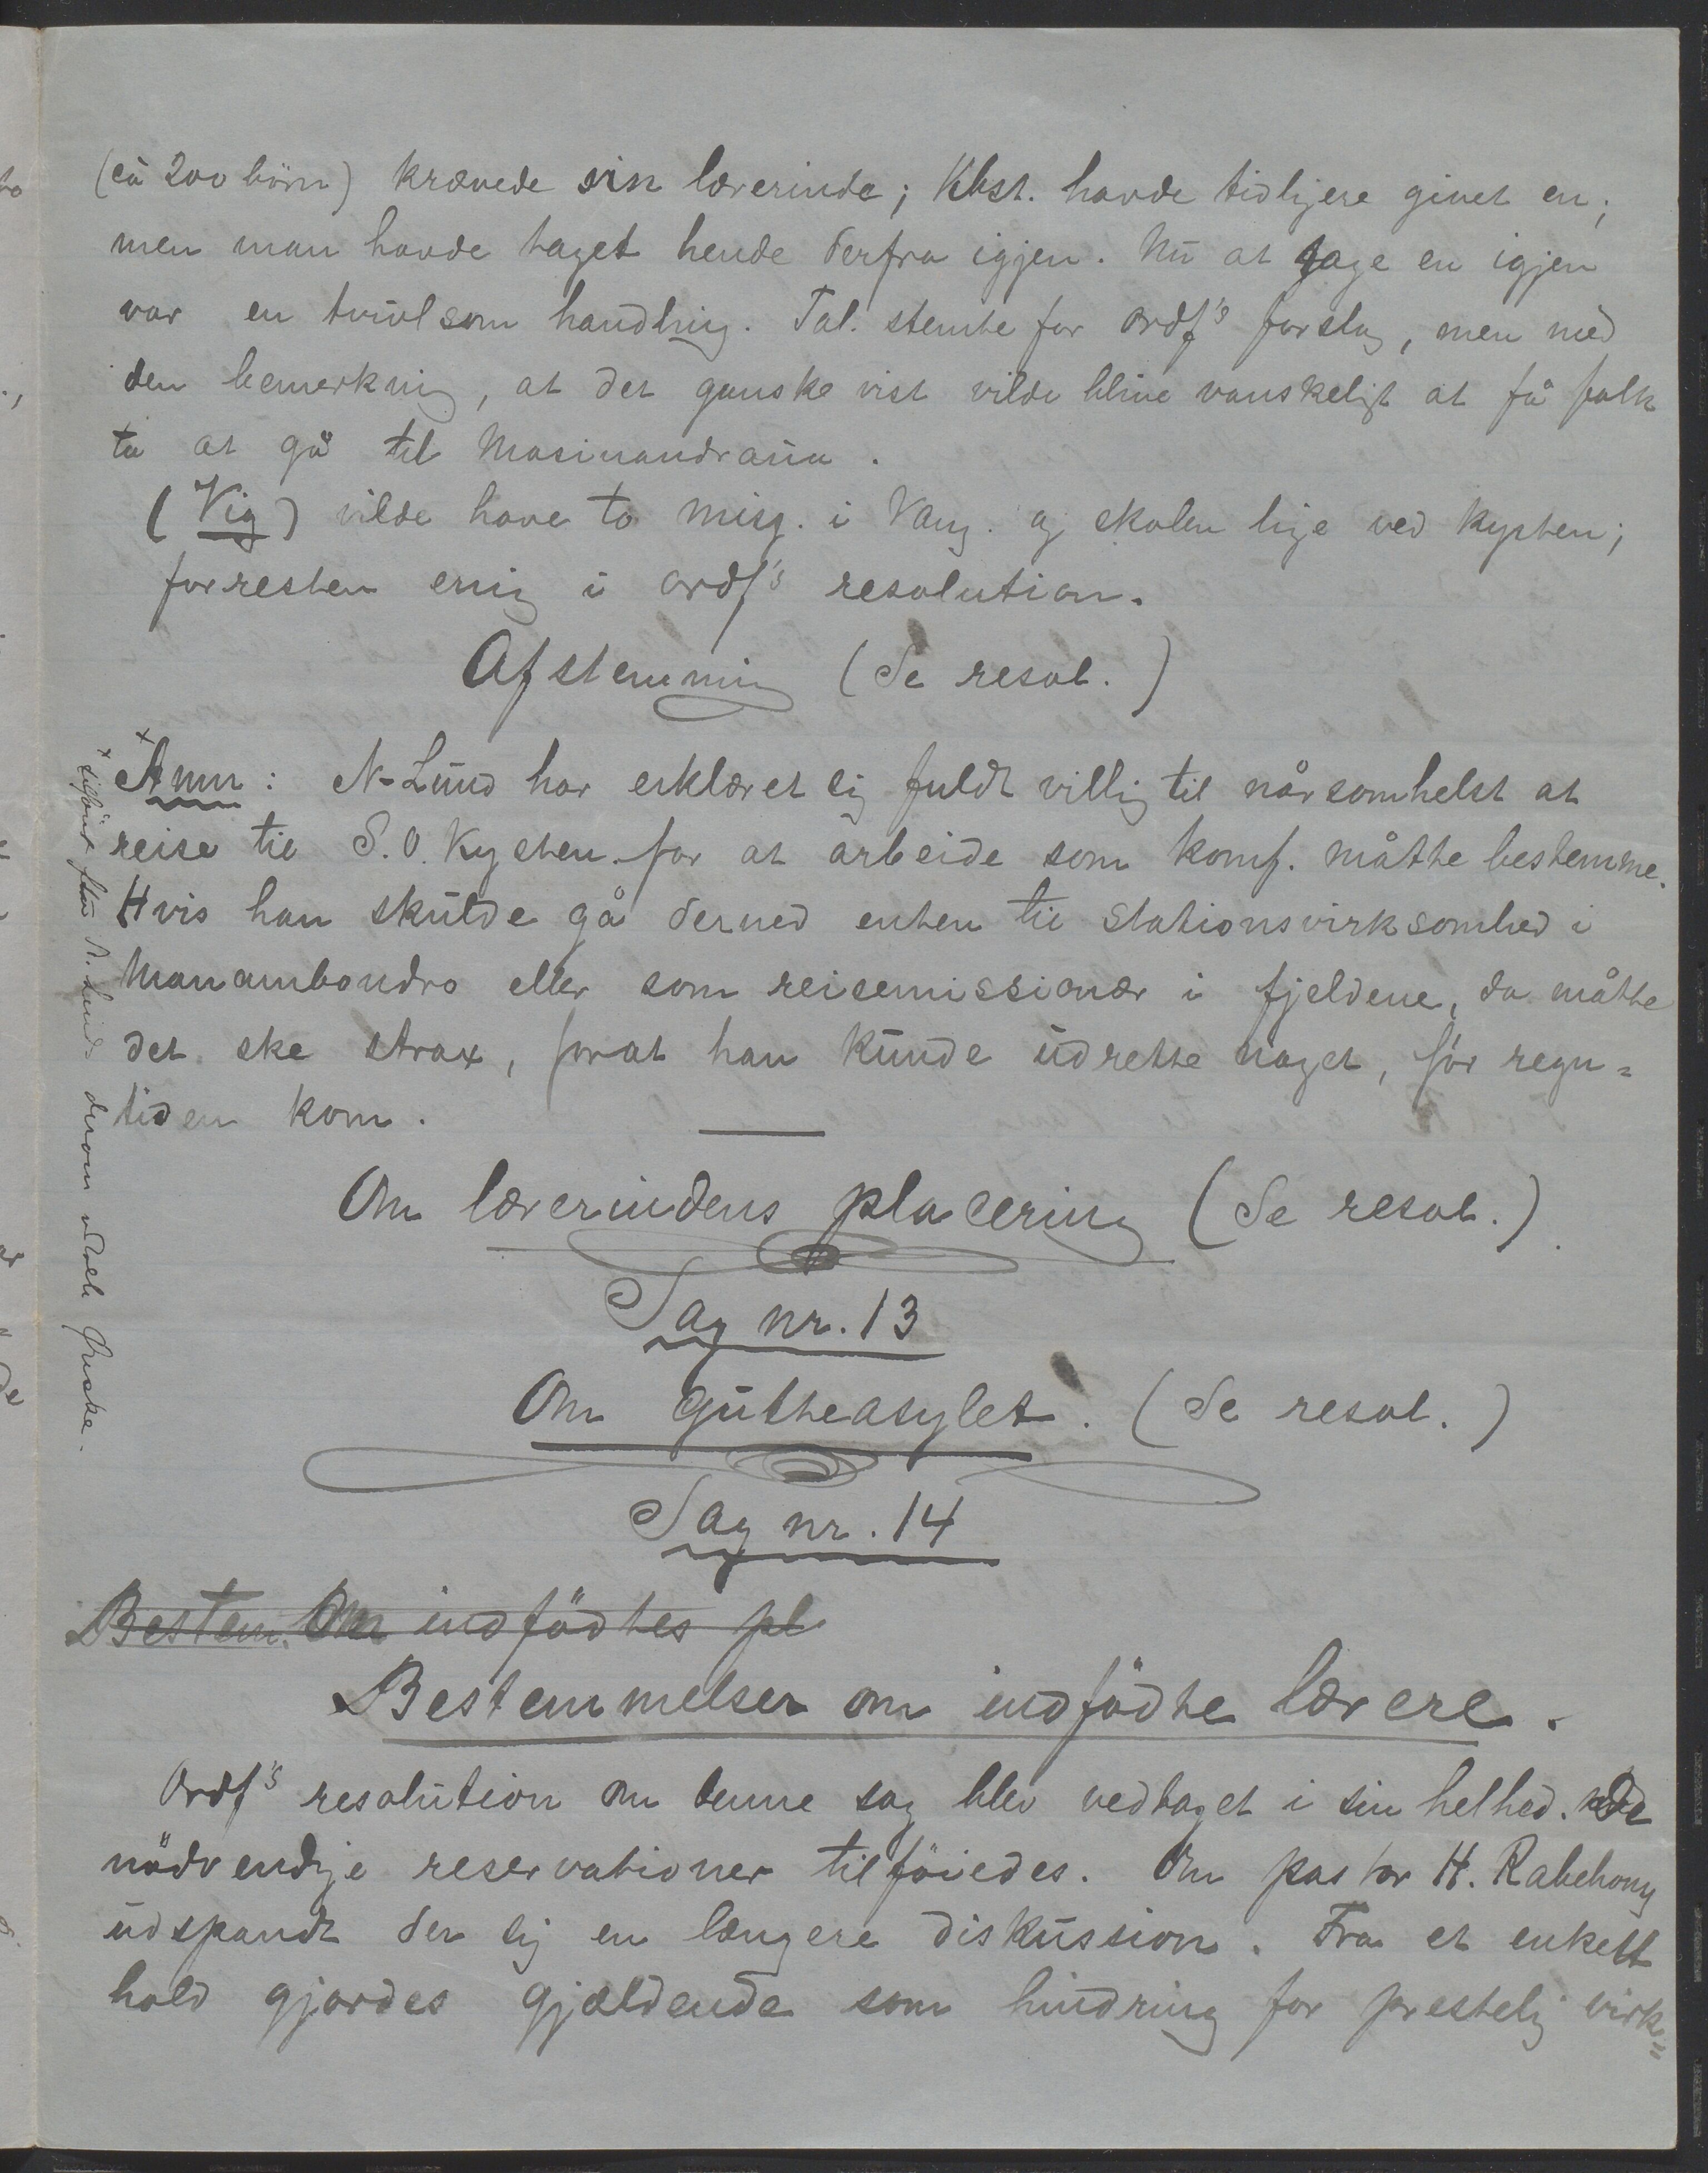 (ca 200 börn) krævede sin lærerinde; Kbst. havde tidligere givet en;
men man havde taget hende derfra igjen. Nu at tage en igjen
var en tvivlsom handling. Tal. stemte for ordf's forslag, men med
den bemerkning, at det ganske vist vilde blive vanskeligt at få folk
til at gå til Masinandraina.
(Vig) vilde have to misj. i Vang. og skolen lige ved kysten;
forresten enig i ordf's resolution.
Afstemning (Se resol.)
x Anm: N-Lund har erklæret sig fuldt villig til nårsomhelst at
reise til S.O. Kysten for at arbeide som konf. måtte bestemme.
Hvis han skulde gå derned enten til stationsvirksomhed i
Manambondro eller som reisemissionær i fjeldene, da måtte
det ske strax, forat han kunde udrette noget, før regn-
tiden kom.
x tilföiet efter N. Lunds derom udtalte Ønske.
Om lærerindens placering (Se resol.)
Sag nr. 13
Om gutteasylet. (Se resol.)
Sag nr. 14
Bestem. Om indfödtes pl
Bestemmelser om indfödte lærere.
Ordf's resolution om denne sag blev vedtaget i sin helhed. De
nödvendige reservationer tilföiedes. Om pastor H. Rabehony
udspandt der sig en længere diskussion. Fra et enkelt
hold gjordes gjældende som hindring for prestelig virk-